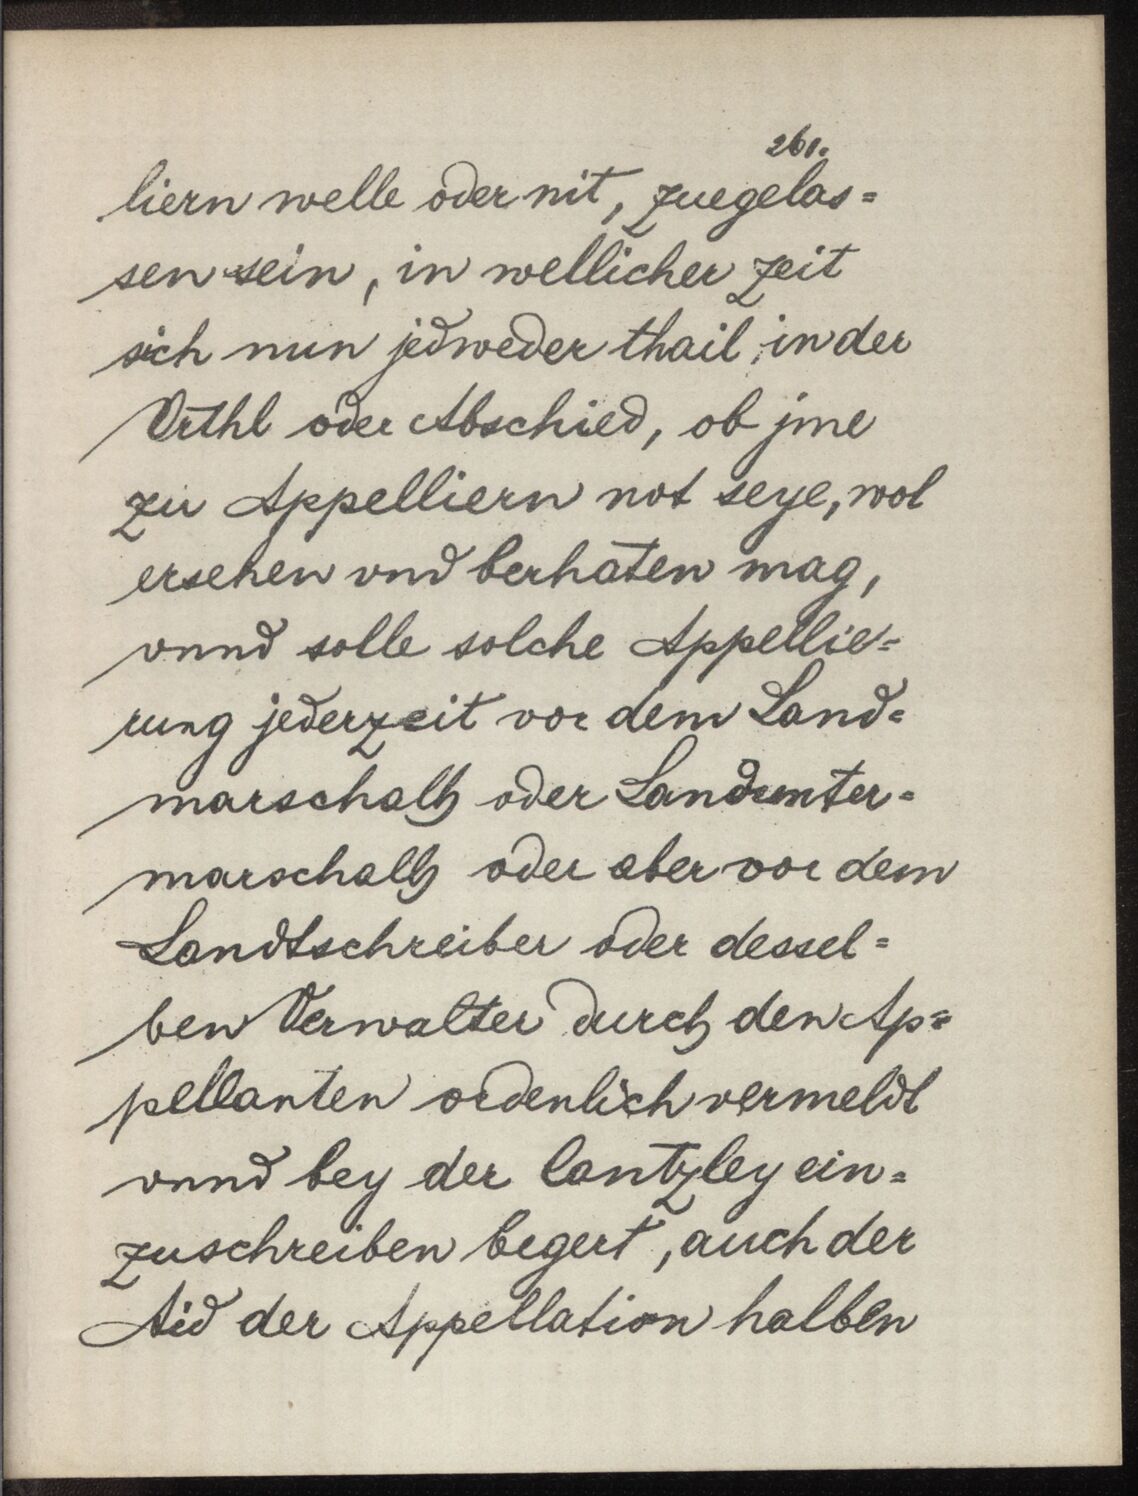 261.
liern welle oder nit, zuegelas=
sen sein, in wellicher zeit
sich nun jedweder thail, in der
Vrthl oder Abschied, ob jme
zu Appelliern not seye, wol
ersehen vnd berhaten mag,
vnnd solle solche Appellie=
rung jederzeit vor dem Land=
marschalh oder Landunter=
marschalh oder aber vor dem
Landtschreiber oder dessel=
ben Verwalter durch den Ap=
pellanten ordenlich vermeldt
vnnd bey der Cantzley ein=
zuschreiben begert, auch der
Aid der Appellation halben